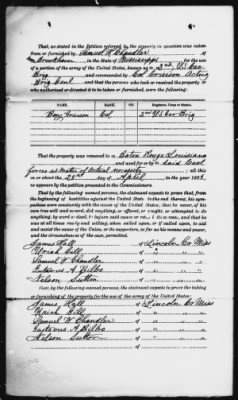 That, as stated in the petition referred to, the property in question was taken
from or furnished by Samuel W Chandler of
Brookhaven, in the State of Mississippi, for the use
of a portion of the army of the United States, known as 2nd US Cav
Brig and commanded by Col Everson Acting
Brig Genl, and that the persons who took or received the property, or
who authorized or directed it to be taken or furnished, were the following:
NAME. RANK. Regiment, Corps or Station.
Col 2nd US Cav Brig
That the property was removed to Baton Rouge Louisiana
and used for or by said
forces as matter of actual necessity; all this
on or about the day of April, in the year 186
as appears by the petition presented to the Commissioners.
That by the following-named persons, the claimant expects to prove that, from the
beginning of hostilities against the United States to the end thereof, his sym-
pathies were constantly with the cause of the United States; that he never, of his
own free will and accord, did anything, or offered, or sought, or attempted to do
anything, by word or deed, to injure said cause or retard its success, and that he
was at all times ready and willing, when called upon, or if called upon, to aid
and assist the cause of the Union, or its supporters, so far as his means and power,
and the circumstances of the case, permitted.
James Hall of Lincoln Co Miss
of " " "
Samuel W Chandler of " " "
Gustavus A Bilbo of " " "
Nelson Sutton of " " "
of
That, by the following-named persons, the claimant expects to prove the taking
or furnishing of the property for the use of the army of the United States.
James Hall of Lincoln Co Miss
of " " "
Samuel W Chandler of " " "
Gustavus A Bilbo of " " "
Nelson Sutton of " " "